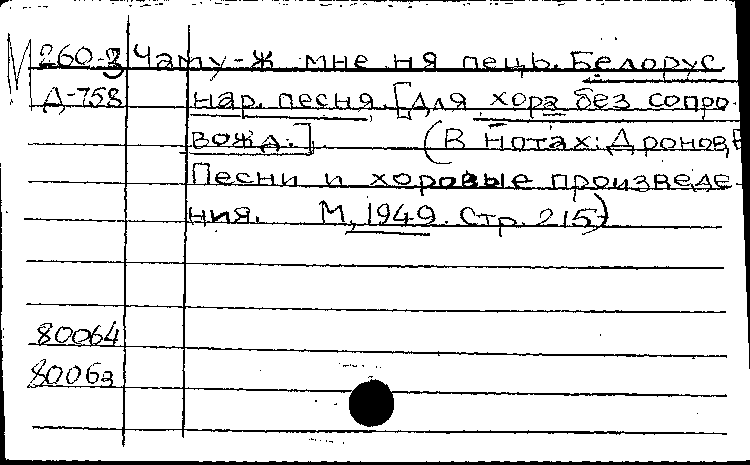 М 260-3 Чаму-ж мне ня пець. Белорус
Д-758 нар. песня. [Для хора без сопро-
вожд.] (В нотах: Дронов,
Песни и хоровые произведе-
ния. М, 1949. Стр. 215)
80064
8006а